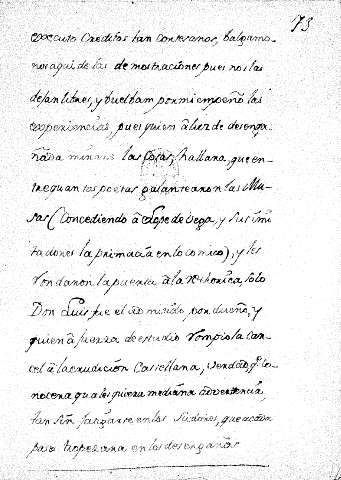 73
executo Creditos tan contesanos, balgamo
nos aqui de las demostraciones pues nos las
dejan libres, y bueltbam por mi empeño las
experiencias, pues quien â luz de desenga
ñada minare las cosas, hallara, que en
tre quantos poetas galantearon las Mu
sas (Concediendo â Lope de Vega, y sus imi
tadores la primacia en lo comico), y les
rondaron la puerta â la rethorica, solo
Don Luis fue el admitido por dueño, y
quien â fuerza de estudio rompio la can
cel â la erudicion Castellana, verdad, q.e co
nocera qualquiera mediana advertencia,
tan sin fatigarse en los sudores, que acada
paso tropezara en los desengaños